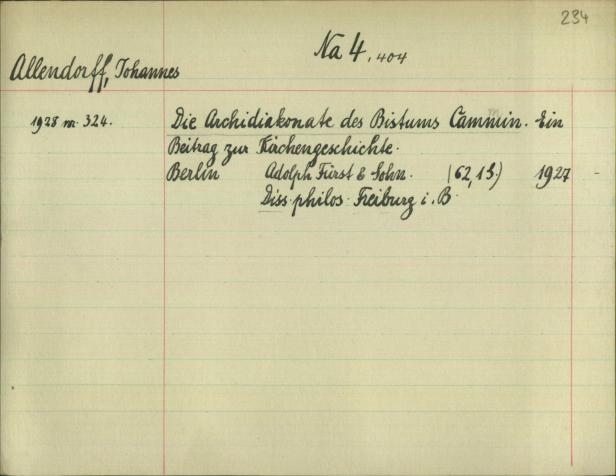 234
Na 4, 404
Allendorff, Johannes
1928 m. 324.
Die Archidiakonate des Bistums Cammin. Ein
Beitrag zur Kirchengeschichte.
Berlin Adolph Fürst & Sohn. (62, 1S.) 1927
Diss. philos. Freiburg i. B.